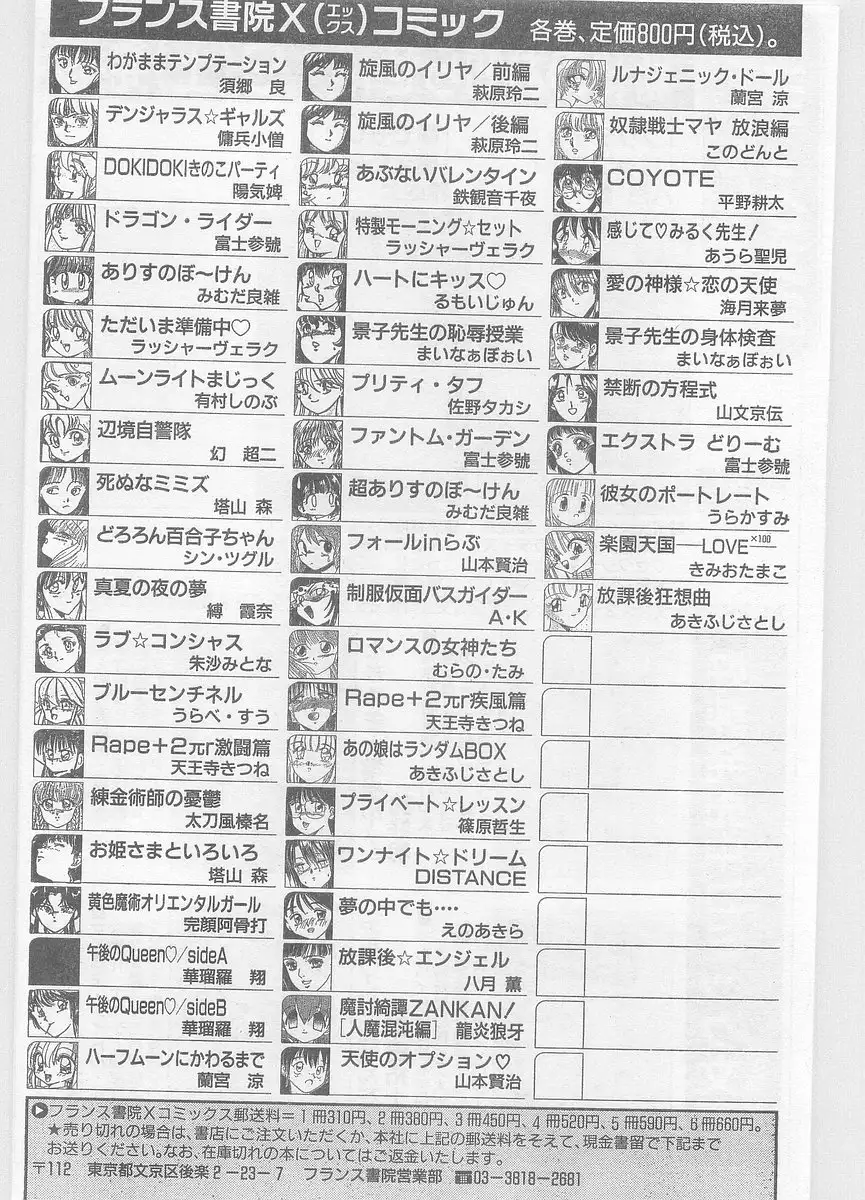 フランス書院X(エックス)コミック 各巻、定価800円(税込)。
わがままテンプテーション
須郷 良
デンジャラス☆ギャルズ
傭兵小僧
DOKIDOKIきのこパーティ
陽気婢
ドラゴン・ライダー
富士参號
ありすのぼ〜けん
みむだ良雑
ただいま準備中♡
ラッシャーヴェラク
ムーンライトまじっく
有村しのぶ
辺境自警隊
幻 超二
死ぬなミミズ
塔山 森
どろろん百合子ちゃん
シン・ツグル
真夏の夜の夢
縛 霞奈
ラブ☆コンシャス
朱沙みとな
ブルーセンチネル
うらべ・すう
Rape+2πr激闘篇
天王寺きつね
錬金術師の憂鬱
太刀風榛名
お姫さまといろいろ
塔山 森
黄色魔術オリエンタルガール
完顔阿骨打
午後のQueen♡/sideA
華瑠羅 翔
午後のQueen♡/sideB
華瑠羅 翔
ハーフムーンにかわるまで
蘭宮 涼
旋風のイリヤ/前編
萩原玲二
旋風のイリヤ/後編
萩原玲二
あぶないバレンタイン
鉄観音千夜
特製モーニング☆セット
ラッシャーヴェラク
ハートにキッス♡
るもいじゅん
景子先生の恥辱授業
まいなぁぼぉい
プリティ・タフ
佐野タカシ
ファントム・ガーデン
富士参號
超ありすのぼ〜けん
みむだ良雑
フォールinらぶ
山本賢治
制服仮面バスガイダー
A・K
ロマンスの女神たち
むらの・たみ
Rape+2πr疾風篇
天王寺きつね
あの娘はランダムBOX
あきふじさとし
プライベート☆レッスン
篠原哲生
ワンナイト☆ドリーム
DISTANCE
夢の中でも‥‥
えのあきら
放課後☆エンジェル
八月 薫
魔討綺譚ZANKAN!
[人魔混沌編] 龍炎狼牙
天使のオプション♡
山本賢治
ルナジェニック・ドール
蘭宮 涼
奴隷戦士マヤ 放浪編
このどんと
COYOTE
平野耕太
感じて♡みるく先生!
あうら聖児
愛の神様☆恋の天使
海月来夢
景子先生の身体検査
まいなぁぼぉい
禁断の方程式
山文京伝
エクストラ どりーむ
富士参號
彼女のポートレート
うらかすみ
楽園天国―LOVE×100―
きみおたまこ
放課後狂想曲
あきふじさとし
▶フランス書院Xコミックス郵送料=1冊310円、2冊380円、3冊450円、4冊520円、5冊590円、6冊660円。
★売り切れの場合は、書店にご注文いただくか、本社に上記の郵送料をそえて、現金書留で下記まで
お送りください。なお、在庫切れの本についてはご返金いたします。
〒112 東京都文京区後楽2-23-7 フランス書院営業部 ☎03-3818-2681